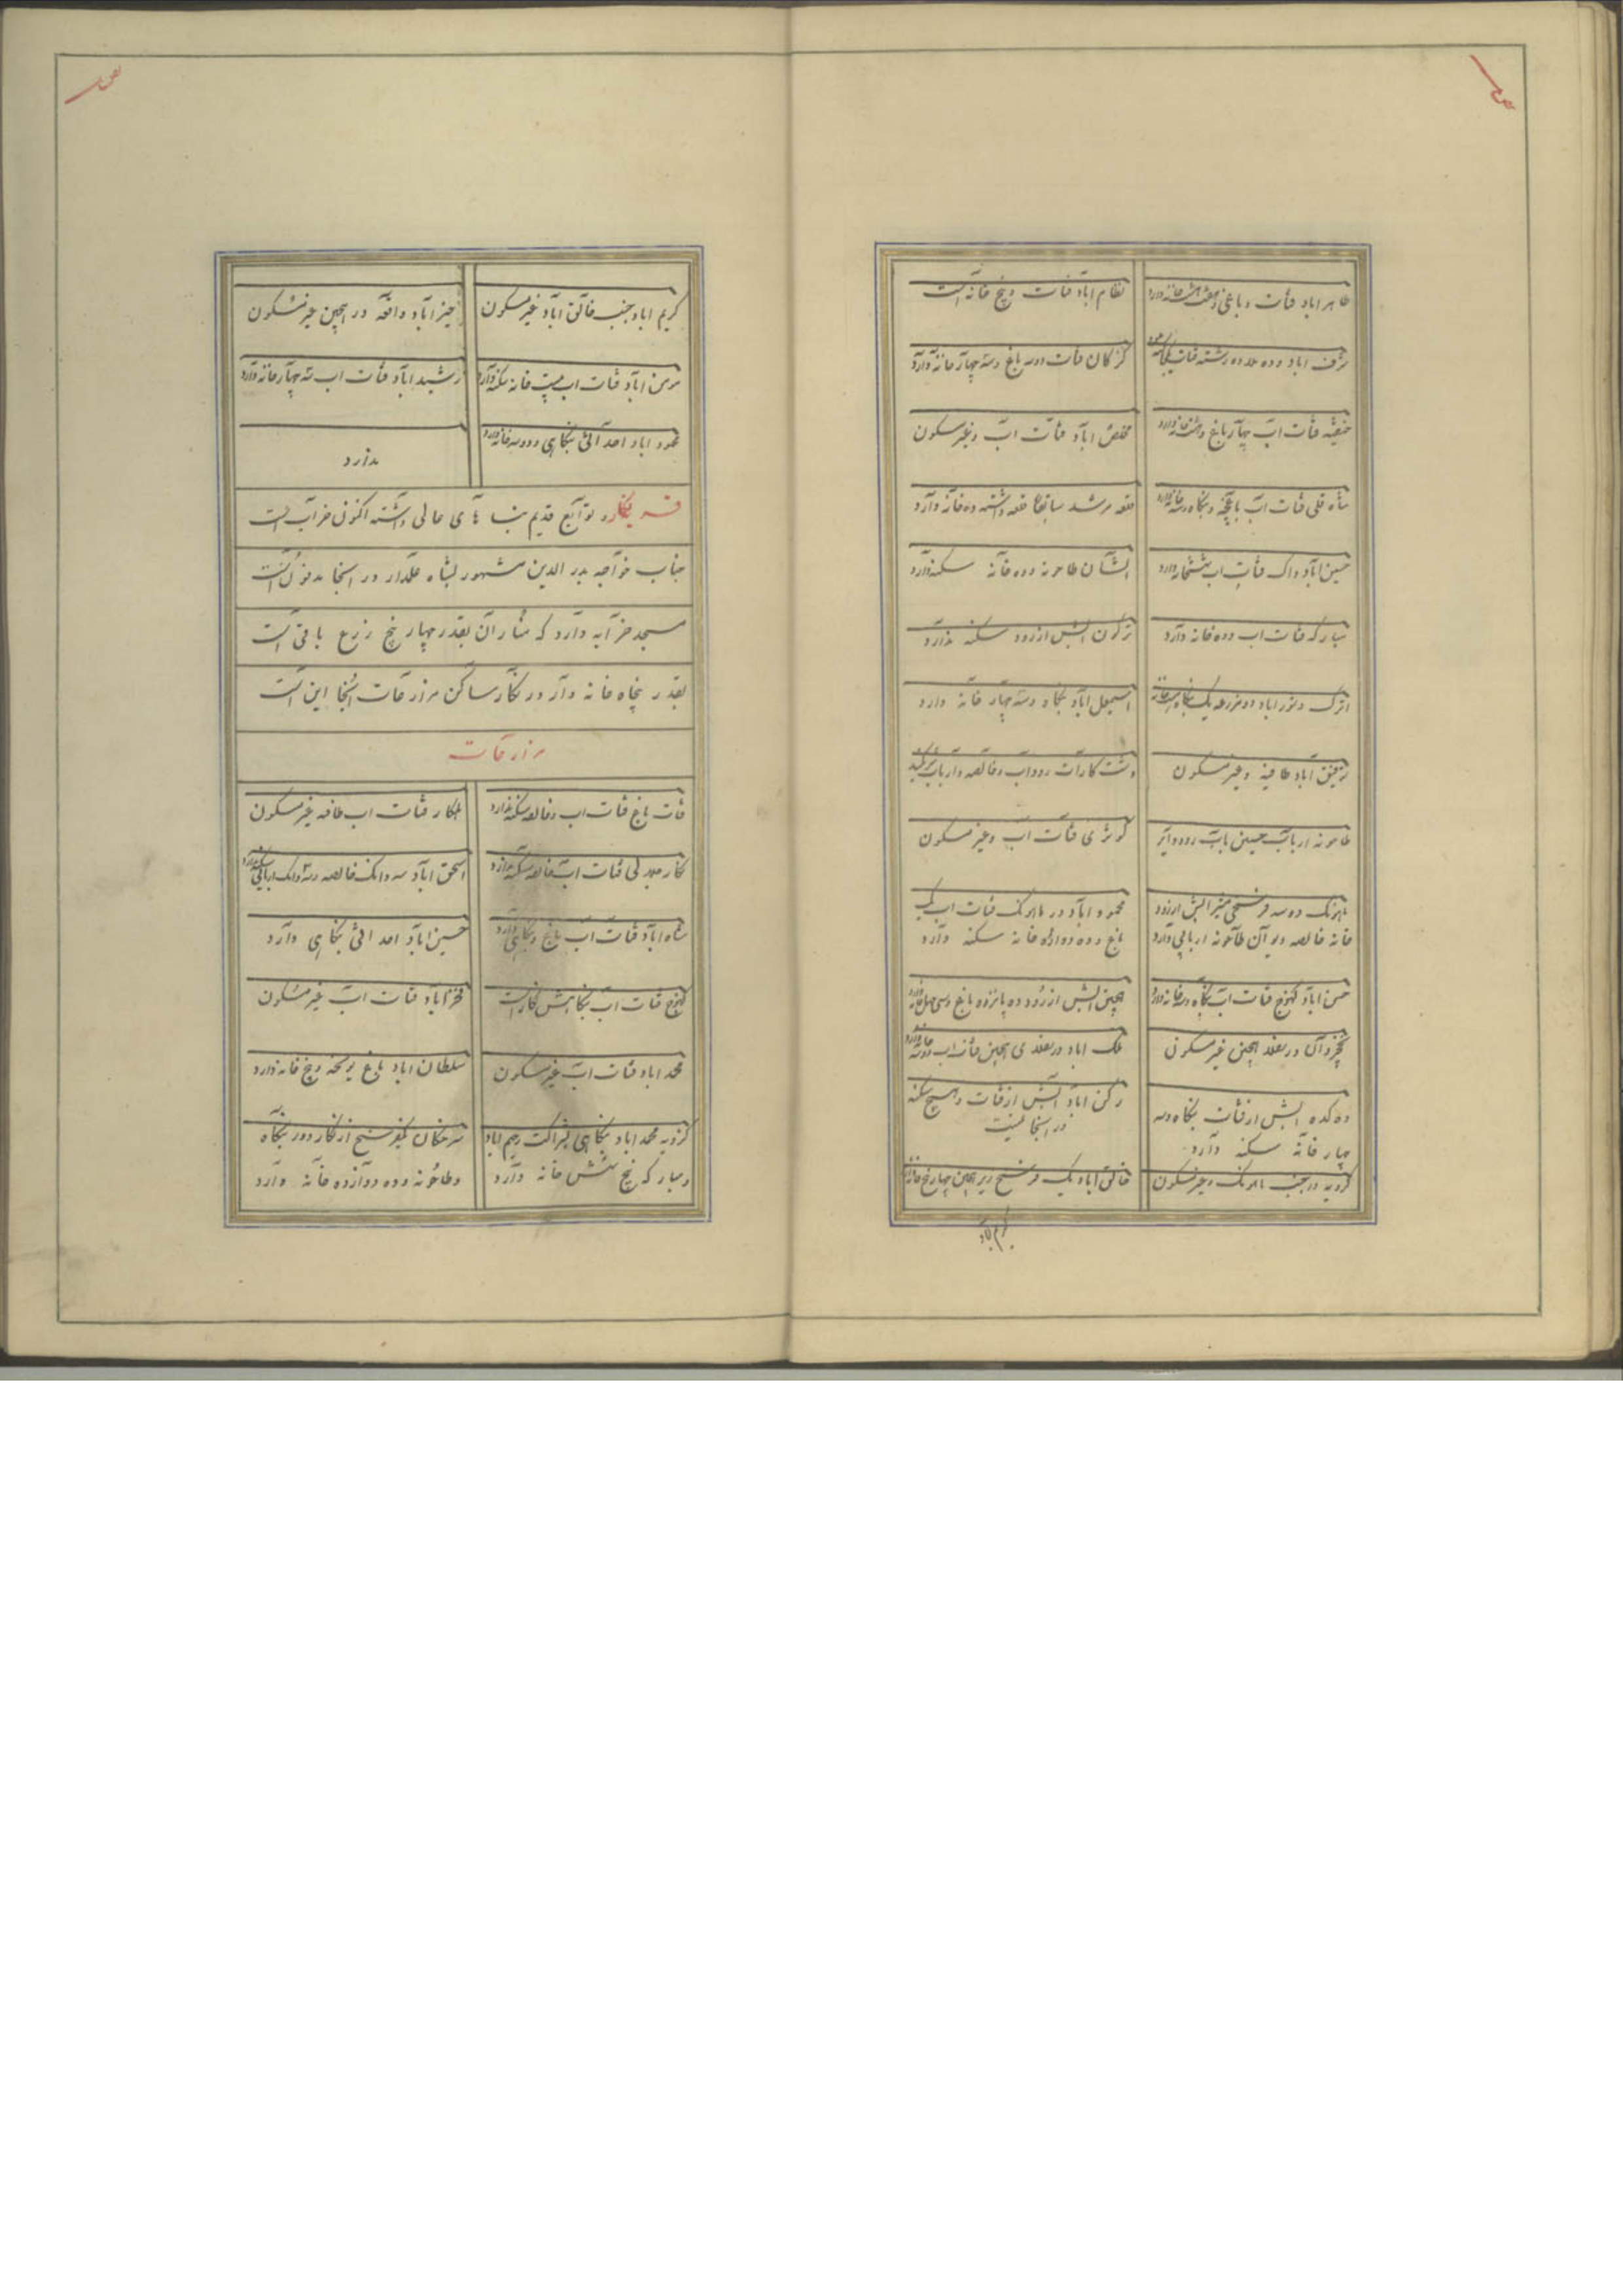 طاهر اباد قنات و باغی و هفت هشت خانه دارد
نظام اباد قنات و پنج خانه است
شرف اباد و ده رشته قنات
کزکان قنات دوسه باغ و سه چهار خانه دارد
قنات اب چهار باغ و هشت خانه دارد
مخلص اباد قنات اب و غیر مسکون
شاه قلی قنات اب باغچه و بنگاه دوسه خانه دارد
قلعه مرشد سابقا قلعه داشته ده خانه دارد
حسین اباد قنات اب شش خانه دارد
طاحونه و ده خانه سکنه دارد
مبارکه قنات اب و ده خانه دارد
ابش از رود سکنه ندارد
و نور اباد دو مزرعه یک بنگاه
اسمعیل اباد بنگاه و سه چهار خانه دارد
توفیق اباد و غیر مسکون
دشت کارات رود اب و خالصه و ارباب
طاحونه ارباب حسینی باب رود دایر
کوثری قنات اب و غیر مسکون
ماهونک دو سه فرسخی ابش از رود
خانه خالصه و بر آن طاحونه اربابی دارد
محمود اباد در ماهونک قنات اب یک
باغ و ده دوازده خانه سکنه دارد
حسن اباد کهنوج قنات اب بنگاه دوسه خانه دارد
ابش از رود ده پانزده باغ و سی چهل خانه دارد
در بغل غیر مسکون
ملک اباد در قنات اب دوسه خانه دارد
ده کده ابش از قنات بنگاه دوسه
چهار خانه سکنه دارد
رکن اباد ابش از قنات و هیچ سکنه
در اینجا نیست
در جنب ماهونک و غیر مسکون
خالق اباد یک فرسخ زیر چهار پنج خانه دارد
کریم اباد
کریم اباد جنب خالق اباد غیر مسکون
خیر اباد واقعه در غیر مسکون
مومن اباد قنات اب بیست خانه سکنه دارد
رشید اباد قنات اب سه چهار خانه دارد
محمود اباد احداثی بنگاهی و دوسه خانه دارد
ندارد
قریه نگار و توابع قدیم بنا های عالی داشته اکنون خراب است
جناب خواجه بدر الدین مشهور بشاه علمدار در اینجا مدفون است
مسجد خرابه دارد که منار ان بقدر چهار پنج ذرع باقی است
بقدر پنجاه خانه وار در نگار ساکن مزارعات اینجا این است
مزارعات
قنات باغ قنات اب و خالصه سکنه ندارد
قنات اب خالصه غیر مسکون
قنات اب خالصه سکنه ندارد
اسحق اباد سه دانگ خالصه و سه دانگ اربابی سکنه ندارد
شاه اباد قنات اب باغ و بنگاهی دارد
حسین اباد احداثی بنگاهی دارد
کهنوج قنات اب بنگاهش نگار است
فخر اباد قنات اب غیر مسکون
محمد اباد قنات اب غیر مسکون
سلطان اباد باغ پر نخه و پنج خانه دارد
محمد اباد بنگاهی بشراکت رحیم اباد
و مبارکه پنج شش خانه دارد
یکفرسخ از نگار دور بنگاه
و طاحونه و ده دوازده خانه دارد